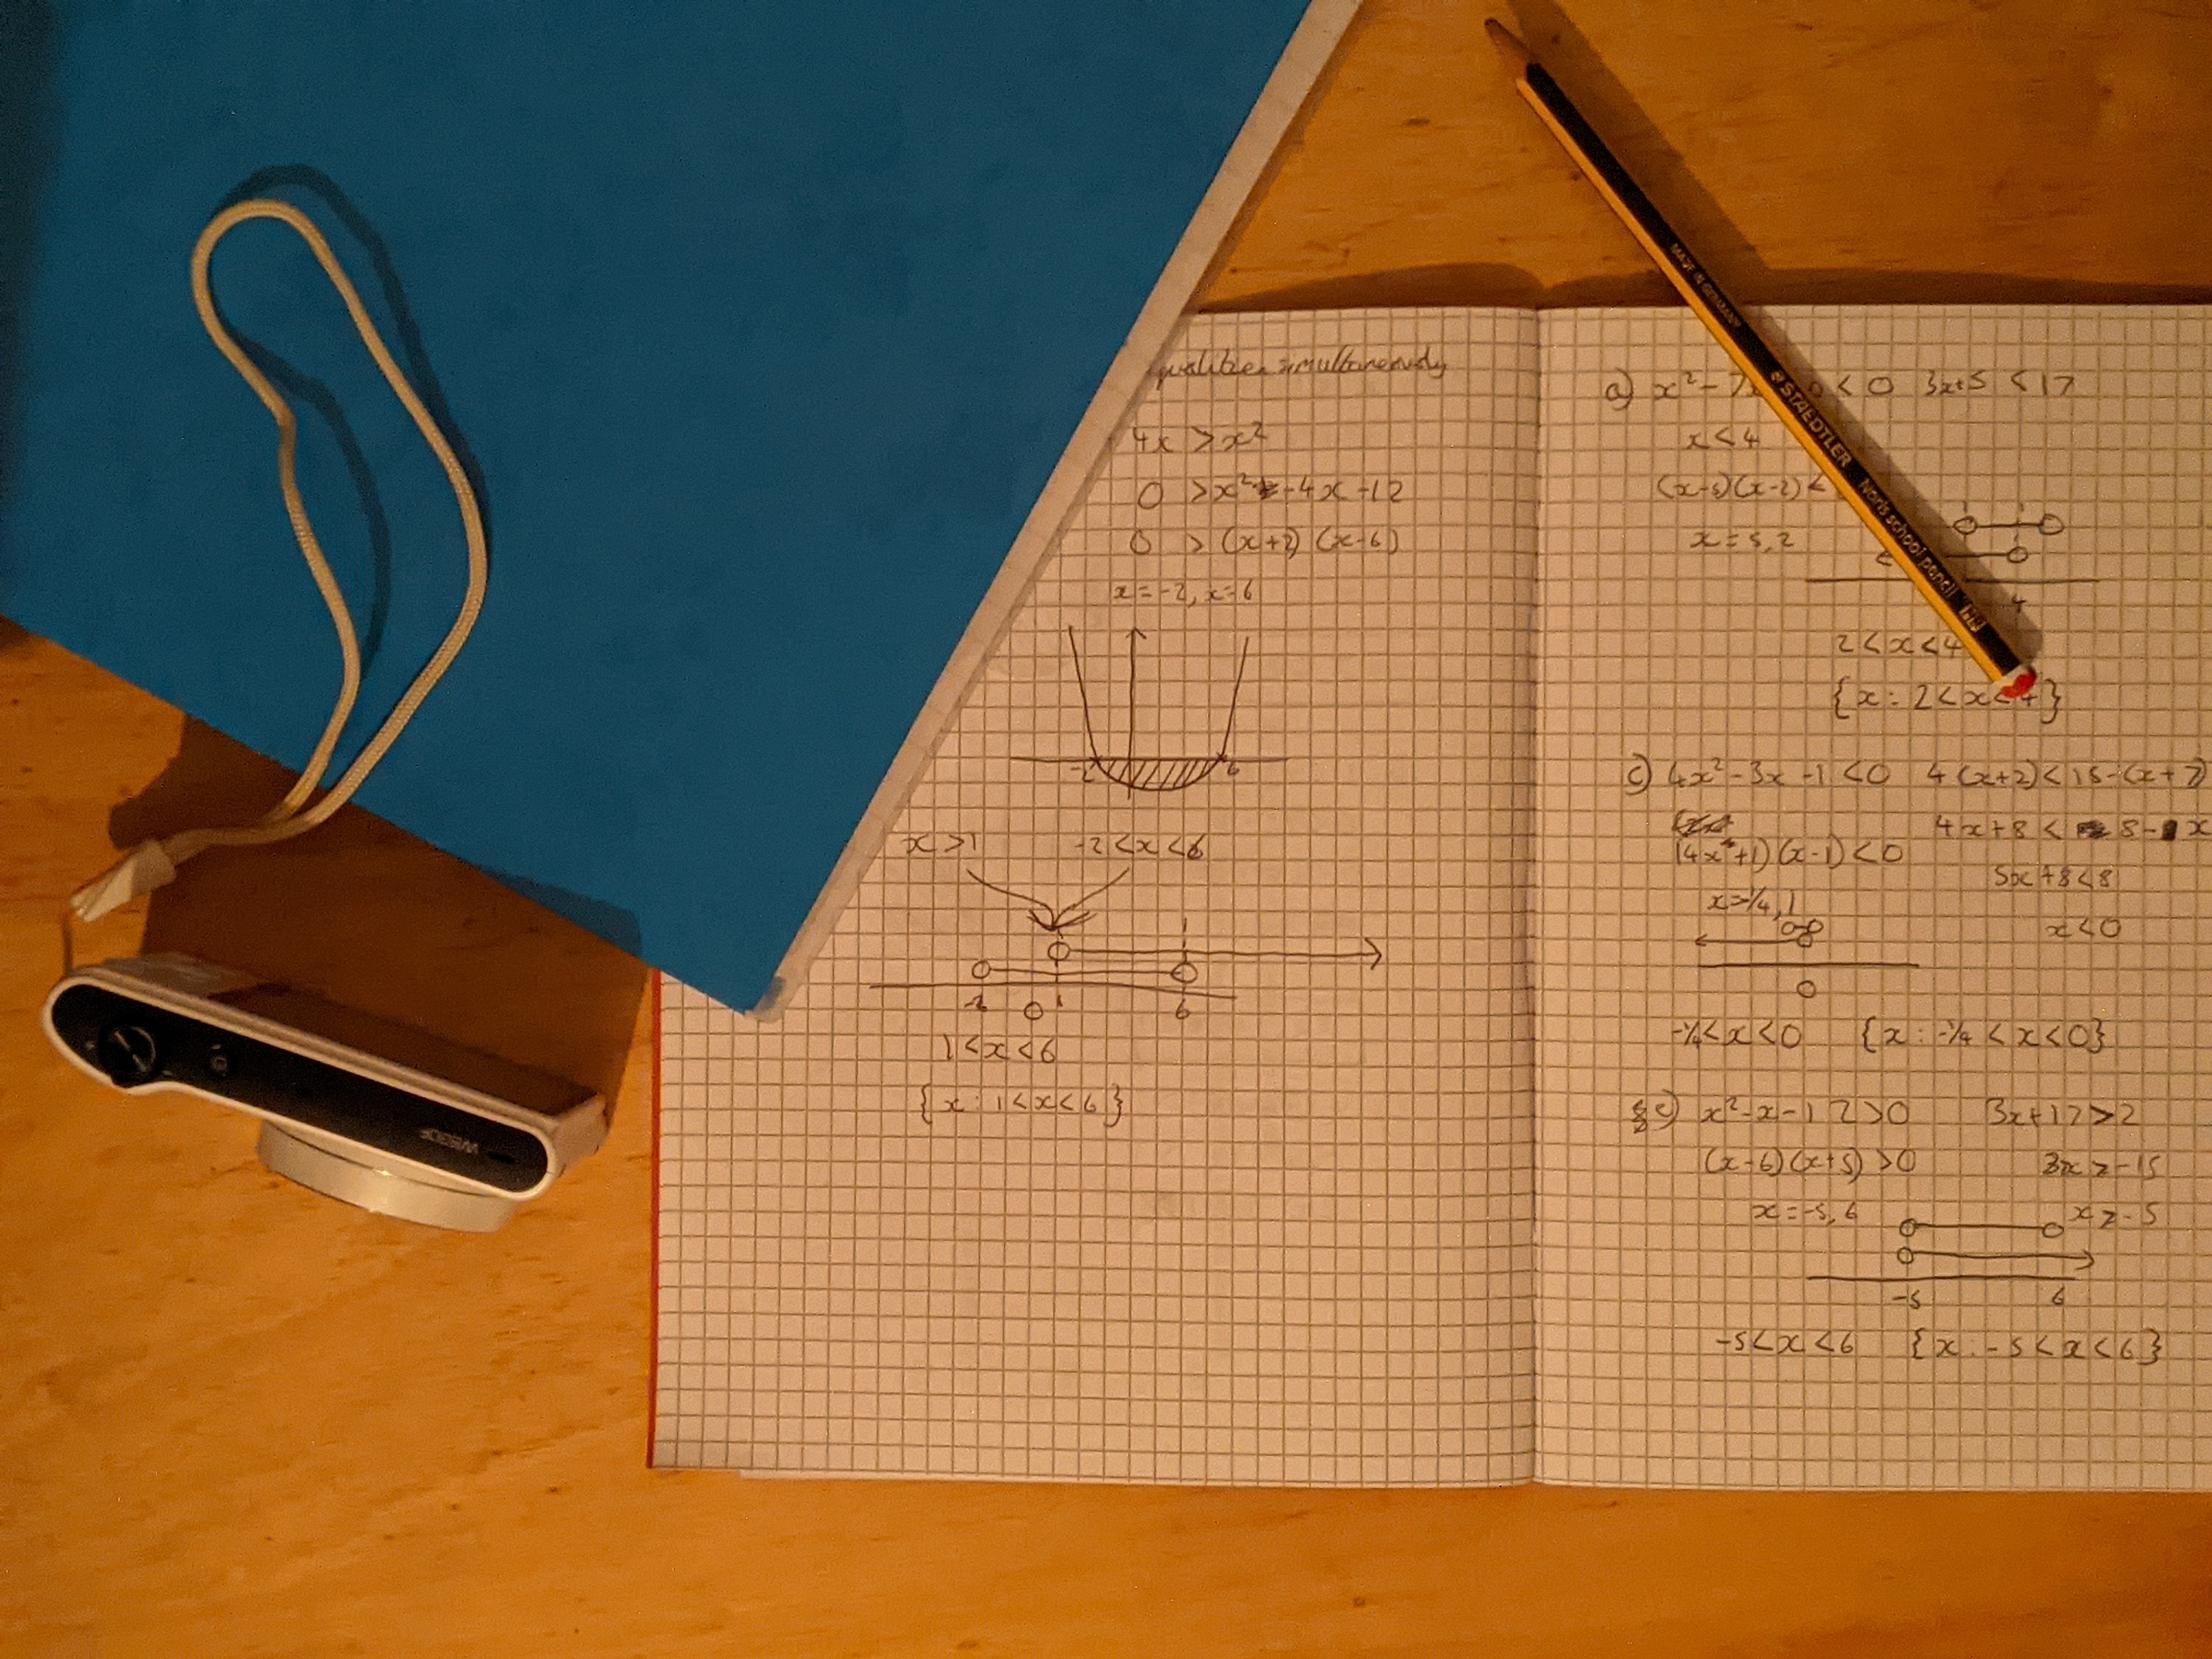 simultaneously
4x > x²
0 > x² - 4x - 12
0 > (x+2) (x-6)
x = -2, x = 6
-2 6
x > 1 -2 < x < 6
-2 0 1 6
1 < x < 6
{ x : 1 < x < 6 }
a) x² - 7x 0 < 0 3x+5 < 17
x < 4
(x-5)(x-2) <
x = 5, 2
4
2 < x < 4
{ x : 2 < x < 4 }
c) 4x² - 3x - 1 < 0 4(x+2) < 15 - (x+7)
4x+8 < 8 - x
(4x+1)(x-1) < 0
5x+8 < 8
x = -1/4, 1
x < 0
0
-1/4 < x < 0 { x : -1/4 < x < 0 }
e) x² - x - 12 > 0 3x+17 > 2
(x-6)(x+5) > 0 3x > -15
x = -5, 6 x > -5
-5 6
-5 < x < 6 { x : -5 < x < 6 }
MADE IN GERMANY
STAEDTLER Noris school pencil HB
WB30F